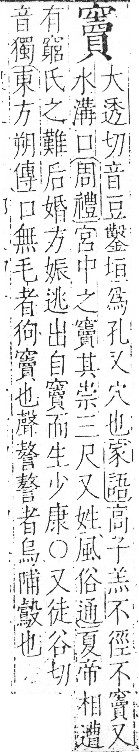 竇
大透切音豆鑿垣爲孔又穴也家語高子羔不徑不竇又
水溝口周禮宮中之竇其崇三尺又姓風俗通夏帝相遭
有窮氏之難后婚方娠逃出自竇而生少康○又徒谷切
音獨東方朔傳口無毛者狗竇也聲謷謷者烏哺鷇也